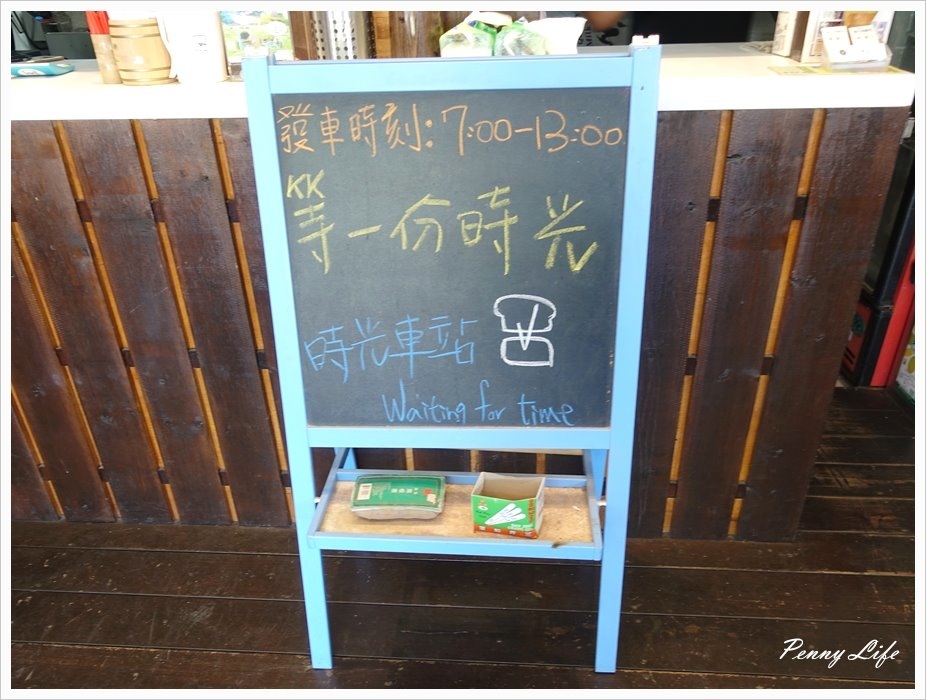 發車時刻：7:00-13:00
KK
等一份時光
時光車站
Waiting for time
Penny Life